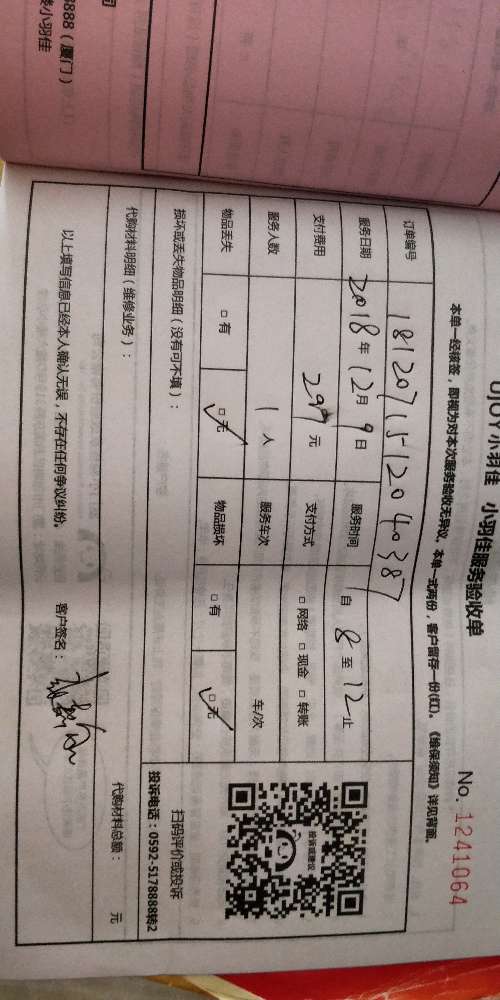 UJOY小羽佳 小羽佳服务验收单
No. 1241064
本单一经核签，即视为对本次服务验收无异议，本单一式两份，客户留存一份(红)。《维保须知》详见背面。
订单编号 1812071512040387
服务日期 2018年12月9日 服务时间 自 8 至 12 止
支付费用 297元 支付方式 □ 网络 □ 现金 □ 转账
服务人数 1 人 服务车次 车/次
物品丢失 □ 有 □ 无 物品损坏 □ 有 □ 无
损坏或丢失物品明细（没有可不填）：
扫码评价或投诉
投诉电话：0592-5178888转2
投诉或建议
代购材料明细（维修业务）：
代购材料总额： 元
以上填写信息已经本人确认无误，不存在任何争议纠纷。 客户签名：
8888（厦门）
小羽佳